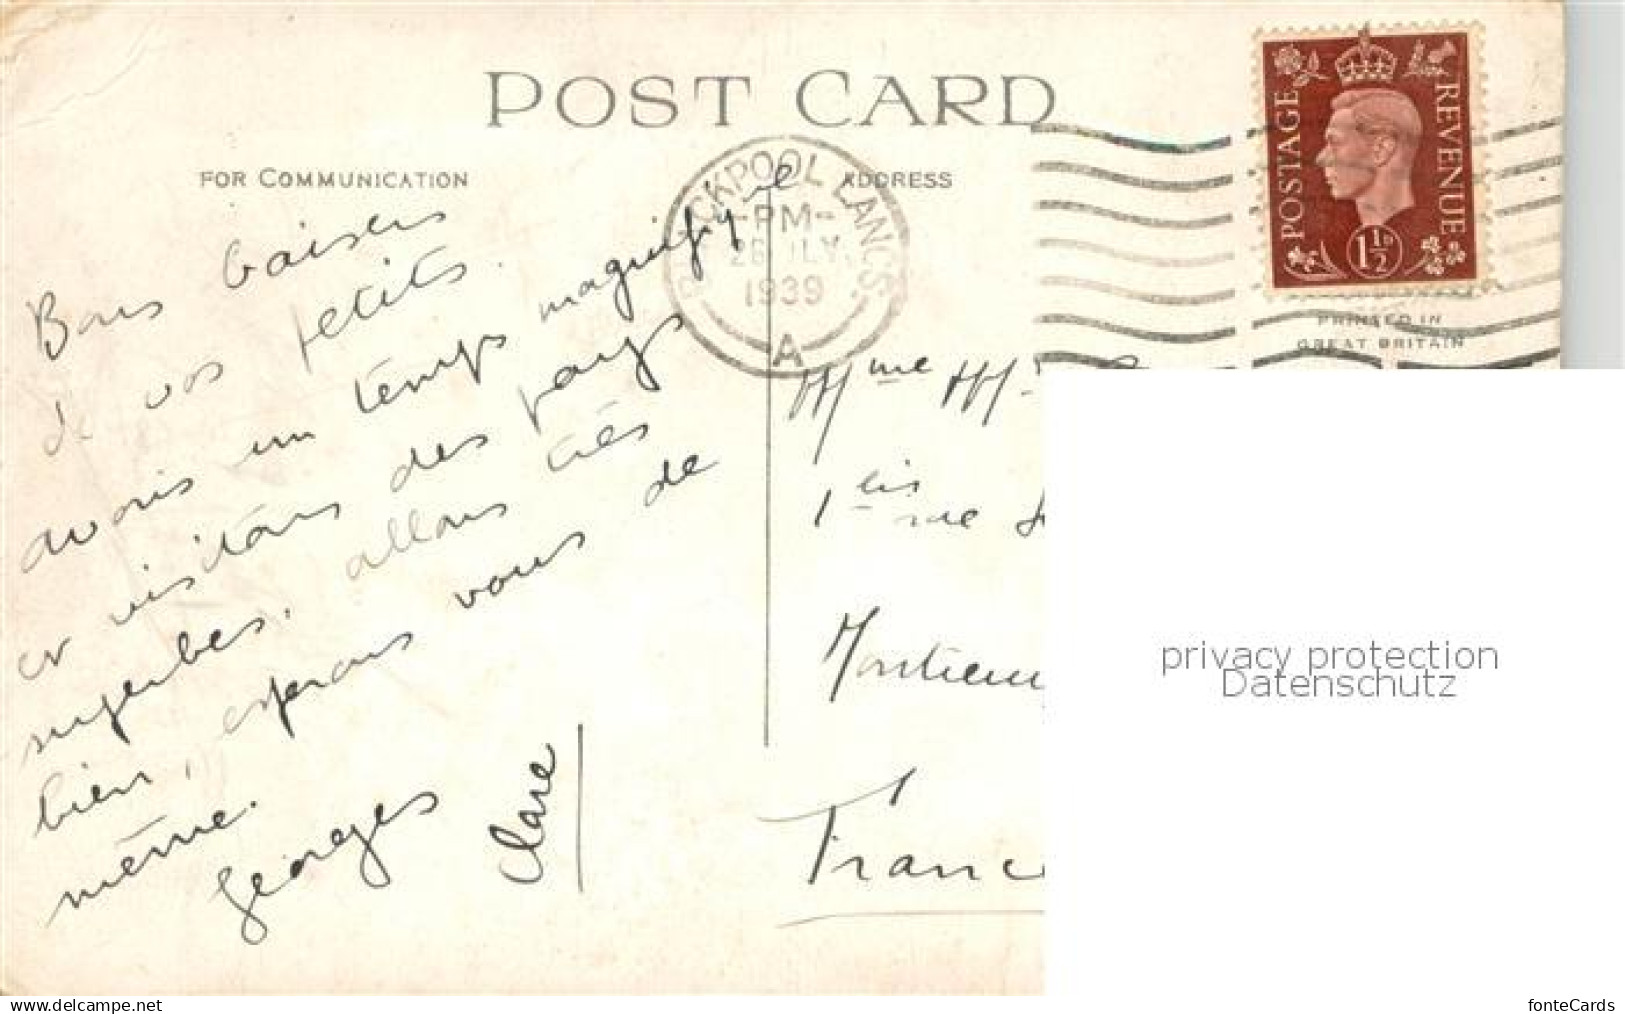 POST CARD
FOR COMMUNICATION
ADDRESS
BLACKPOOL LANCS.
-PM-
JLY
1939
A
POSTAGE
REVENUE
1 1/2 D
PRINTED IN
GREAT BRITAIN
Bons baisers
de vos petits.
avons un temps magnifique
et visitons des pays
superbes. allons très
bien, espérons vous de
même.
Georges
Clare
Mme M
1 bis rue
France
privacy protection
Datenschutz
www.delcampe.net
fonteCards